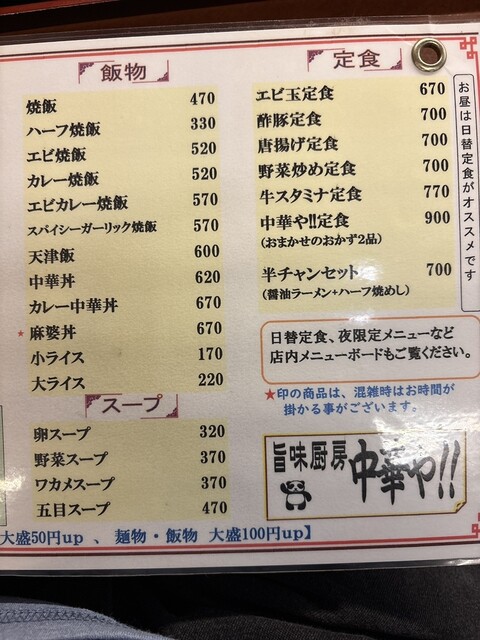 飯物
焼飯 470
ハーフ焼飯 330
エビ焼飯 520
カレー焼飯 520
エビカレー焼飯 570
スパイシーガーリック焼飯 570
天津飯 600
中華丼 620
カレー中華丼 670
★麻婆丼 670
小ライス 170
大ライス 220
スープ
卵スープ 320
野菜スープ 370
ワカメスープ 370
五目スープ 470
定食
エビ玉定食 670
酢豚定食 700
唐揚げ定食 700
野菜炒め定食 700
牛スタミナ定食 770
中華や!!定食 900
(おまかせのおかず2品)
半チャンセット 700
(醤油ラーメン+ハーフ焼めし)
お昼は日替定食がオススメです
日替定食、夜限定メニューなど
店内メニューボードもご覧ください。
★印の商品は、混雑時はお時間が
掛かる事がございます。
旨味厨房
中華や!!
大盛50円up 、麺物・飯物 大盛100円up】